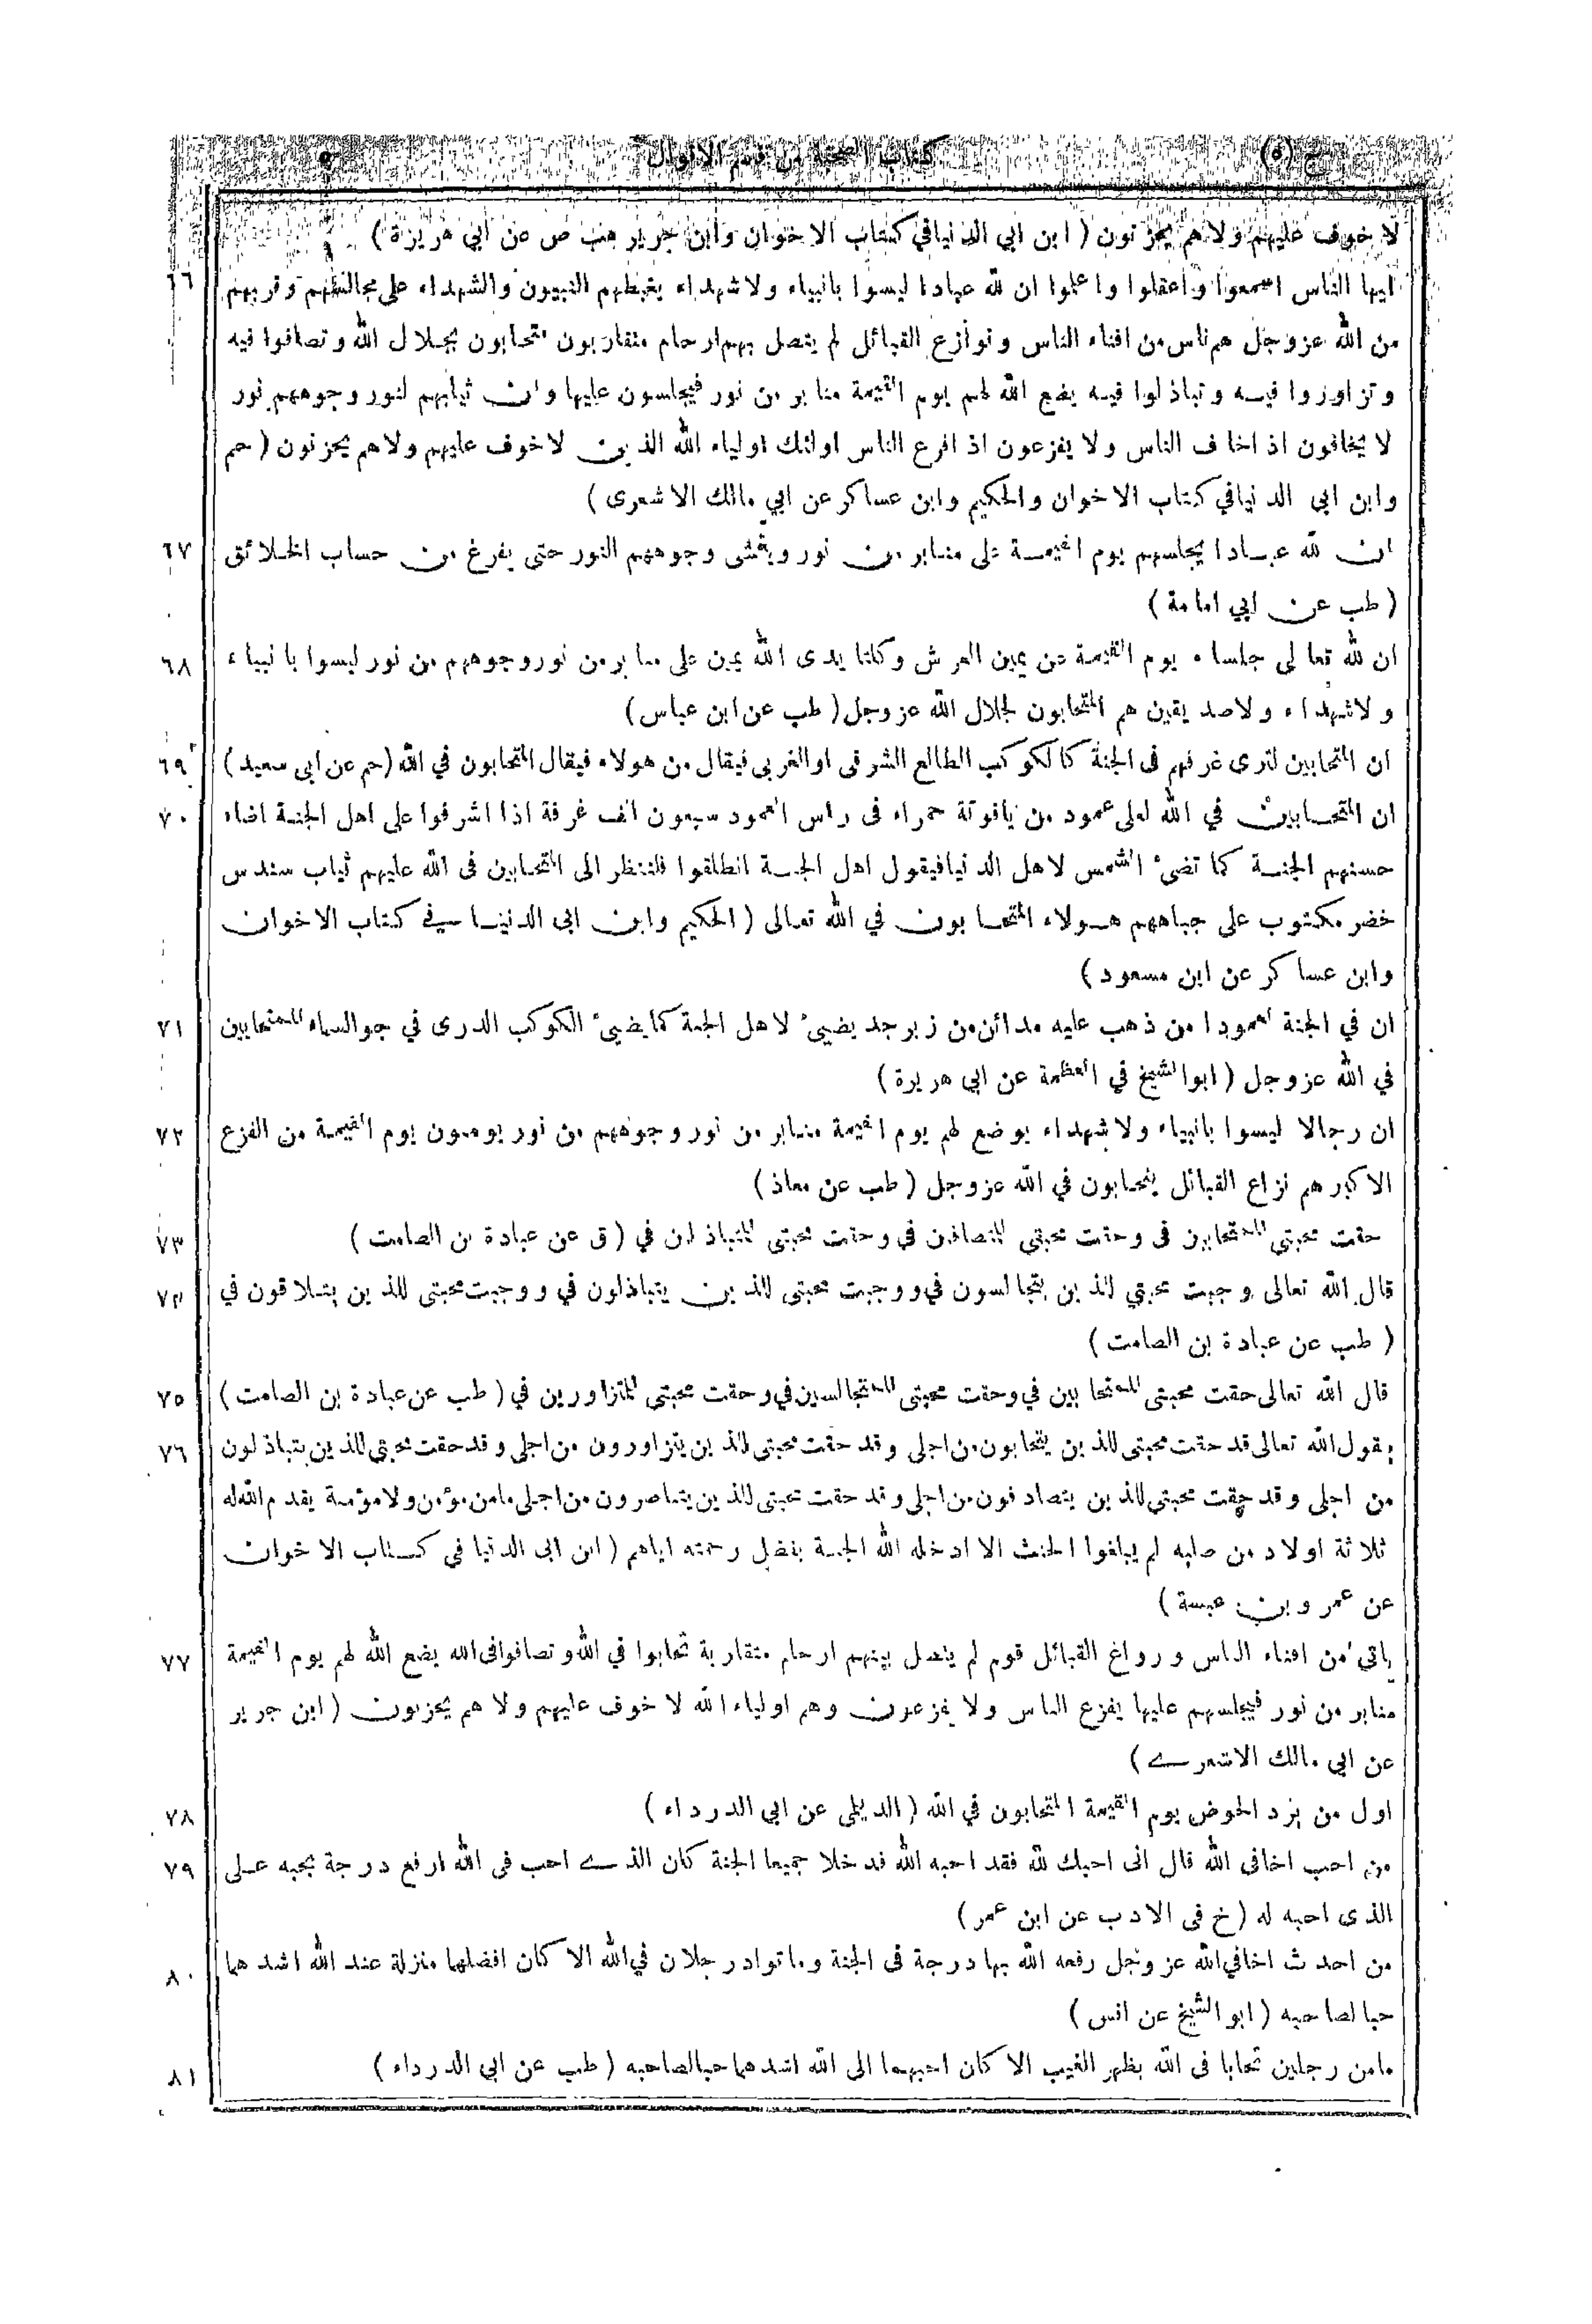 ج (٥) كتاب الصحبة من قسم الاقوال ٥
لا خوف عليهم ولاهم يحزنون ( ابن ابي الدنيا في كتاب الاخوان وابن جرير هب ص عن ابي هريرة )
ايها الناس اسمعوا واعقلوا واعلموا ان لله عبادا ليسوا بانبياء ولا شهداء يغبطهم النبيون والشهداء على مجالسهم وقربهم ٦٦
من الله عز وجل هم ناس من افناء الناس ونوازع القبائل لم يتصل بهم ارحام متقاربون متحابون بجلال الله وتصافوا فيه
وتزاوروا فيه وتباذلوا فيه يضع الله لهم يوم القيمة منابر من نور فيجلسون عليها وان ثيابهم لنور وجوههم نور
لا يخافون اذ اخاف الناس ولا يفزعون اذ افزع الناس اولئك اولياء الله الذين لا خوف عليهم ولاهم يحزنون ( حم
وابن ابي الدنيا في كتاب الاخوان والحكيم وابن عساكر عن ابي مالك الاشعرى )
ان لله عبادا يجلسهم يوم القيمة على منابر من نور ويغشى وجوههم النور حتى يفرغ من حساب الخلائق ٦٧
( طب عن ابي امامة )
ان لله تعالى جلساء يوم القيمة عن يمين العرش وكلتا يدى الله يمين على منابر من نور وجوههم من نور ليسوا بانبياء ٦٨
ولا شهداء ولا صديقين هم المتحابون لجلال الله عز وجل ( طب عن ابن عباس )
ان المتحابين لترى غرفهم فى الجنة كالكوكب الطالع الشرقى او الغربى فيقال من هولاء فيقال المتحابون في الله ( حم عن ابى سعيد ) ٦٩
ان المتحابين في الله لعلى عمود من ياقوتة حمراء فى راس العمود سبعون الف غرفة اذا اشرفوا على اهل الجنة اضاء ٧٠
حسنهم الجنة كما تضئ الشمس لاهل الدنيا فيقول اهل الجنة انطلقوا فلننظر الى المتحابين فى الله عليهم ثياب سندس
خضر مكتوب على جباههم هولاء المتحابون في الله تعالى ( الحكيم وابن ابى الدنيا في كتاب الاخوان
وابن عساكر عن ابن مسعود )
ان في الجنة لعمودا من ذهب عليه مدائن من زبرجد يضيئ لاهل الجنة كما يضيئ الكوكب الدرى في جو السماء للمتحابين ٧١
في الله عز وجل ( ابو الشيخ في العظمة عن ابى هريرة )
ان رجالا ليسوا بانبياء ولا شهداء يوضع لهم يوم القيمة منابر من نور وجوههم من نور يومنون يوم القيمة من الفزع ٧٢
الاكبر هم نزاع القبائل يتحابون في الله عز وجل ( طب عن معاذ )
حقت محبتي للمتحابين فى وحقت محبتي للمتصافين في وحقت محبتي للمتباذلين في ( ق عن عبادة بن الصامت ) ٧٣
قال الله تعالى وجبت محبتي للذين يتجالسون في ووجبت محبتى للذين يتباذلون في ووجبت محبتى للذين يتلاقون في ٧٤
( طب عن عبادة بن الصامت )
قال الله تعالى حقت محبتى للمتحابين في وحقت محبتى للمتجالسين في وحقت محبتى للمتزاورين في ( طب عن عبادة بن الصامت ) ٧٥
يقول الله تعالى قد حقت محبتى للذين يتحابون من اجلى وقد حقت محبتى للذين يتزاورون من اجلى وقد حقت محبتي للذين يتباذلون ٧٦
من اجلى وقد حقت محبتي للذين يتصادقون من اجلى وقد حقت محبتى للذين يتناصرون من اجلى ما من مؤمن ولا مؤمنة يقدم الله له
ثلاثة اولاد من صلبه لم يبلغوا الحنث الا ادخله الله الجنة بفضل رحمته اياهم ( ابن ابى الدنيا في كتاب الاخوان
عن عمرو بن عبسة )
ياتي من افناء الناس ورواغ القبائل قوم لم يتصل بينهم ارحام متقاربة تحابوا في الله وتصافوا فى الله يضع الله لهم يوم القيمة ٧٧
منابر من نور فيجلسهم عليها يفزع الناس ولا يفزعون وهم اولياء الله لا خوف عليهم ولا هم يحزنون ( ابن جرير
عن ابي مالك الاشعرے )
اول من يرد الحوض يوم القيمة المتحابون في الله ( الديلمى عن ابي الدرداء ) ٧٨
من احب اخا فى الله قال انى احبك لله فقد احبه الله فدخلا جميعا الجنة كان الذے احب فى الله ارفع درجة بحبه على ٧٩
الذى احبه له ( خ فى الادب عن ابن عمر )
من احدث اخا في الله عز وجل رفعه الله بها درجة فى الجنة وما تواد رجلان في الله الا كان افضلهما منزلة عند الله اشدهما ٨٠
حبا لصاحبه ( ابو الشيخ عن انس )
ما من رجلين تحابا فى الله بظهر الغيب الا كان احبهما الى الله اشدهما حبا لصاحبه ( طب عن ابي الدرداء ) ٨١